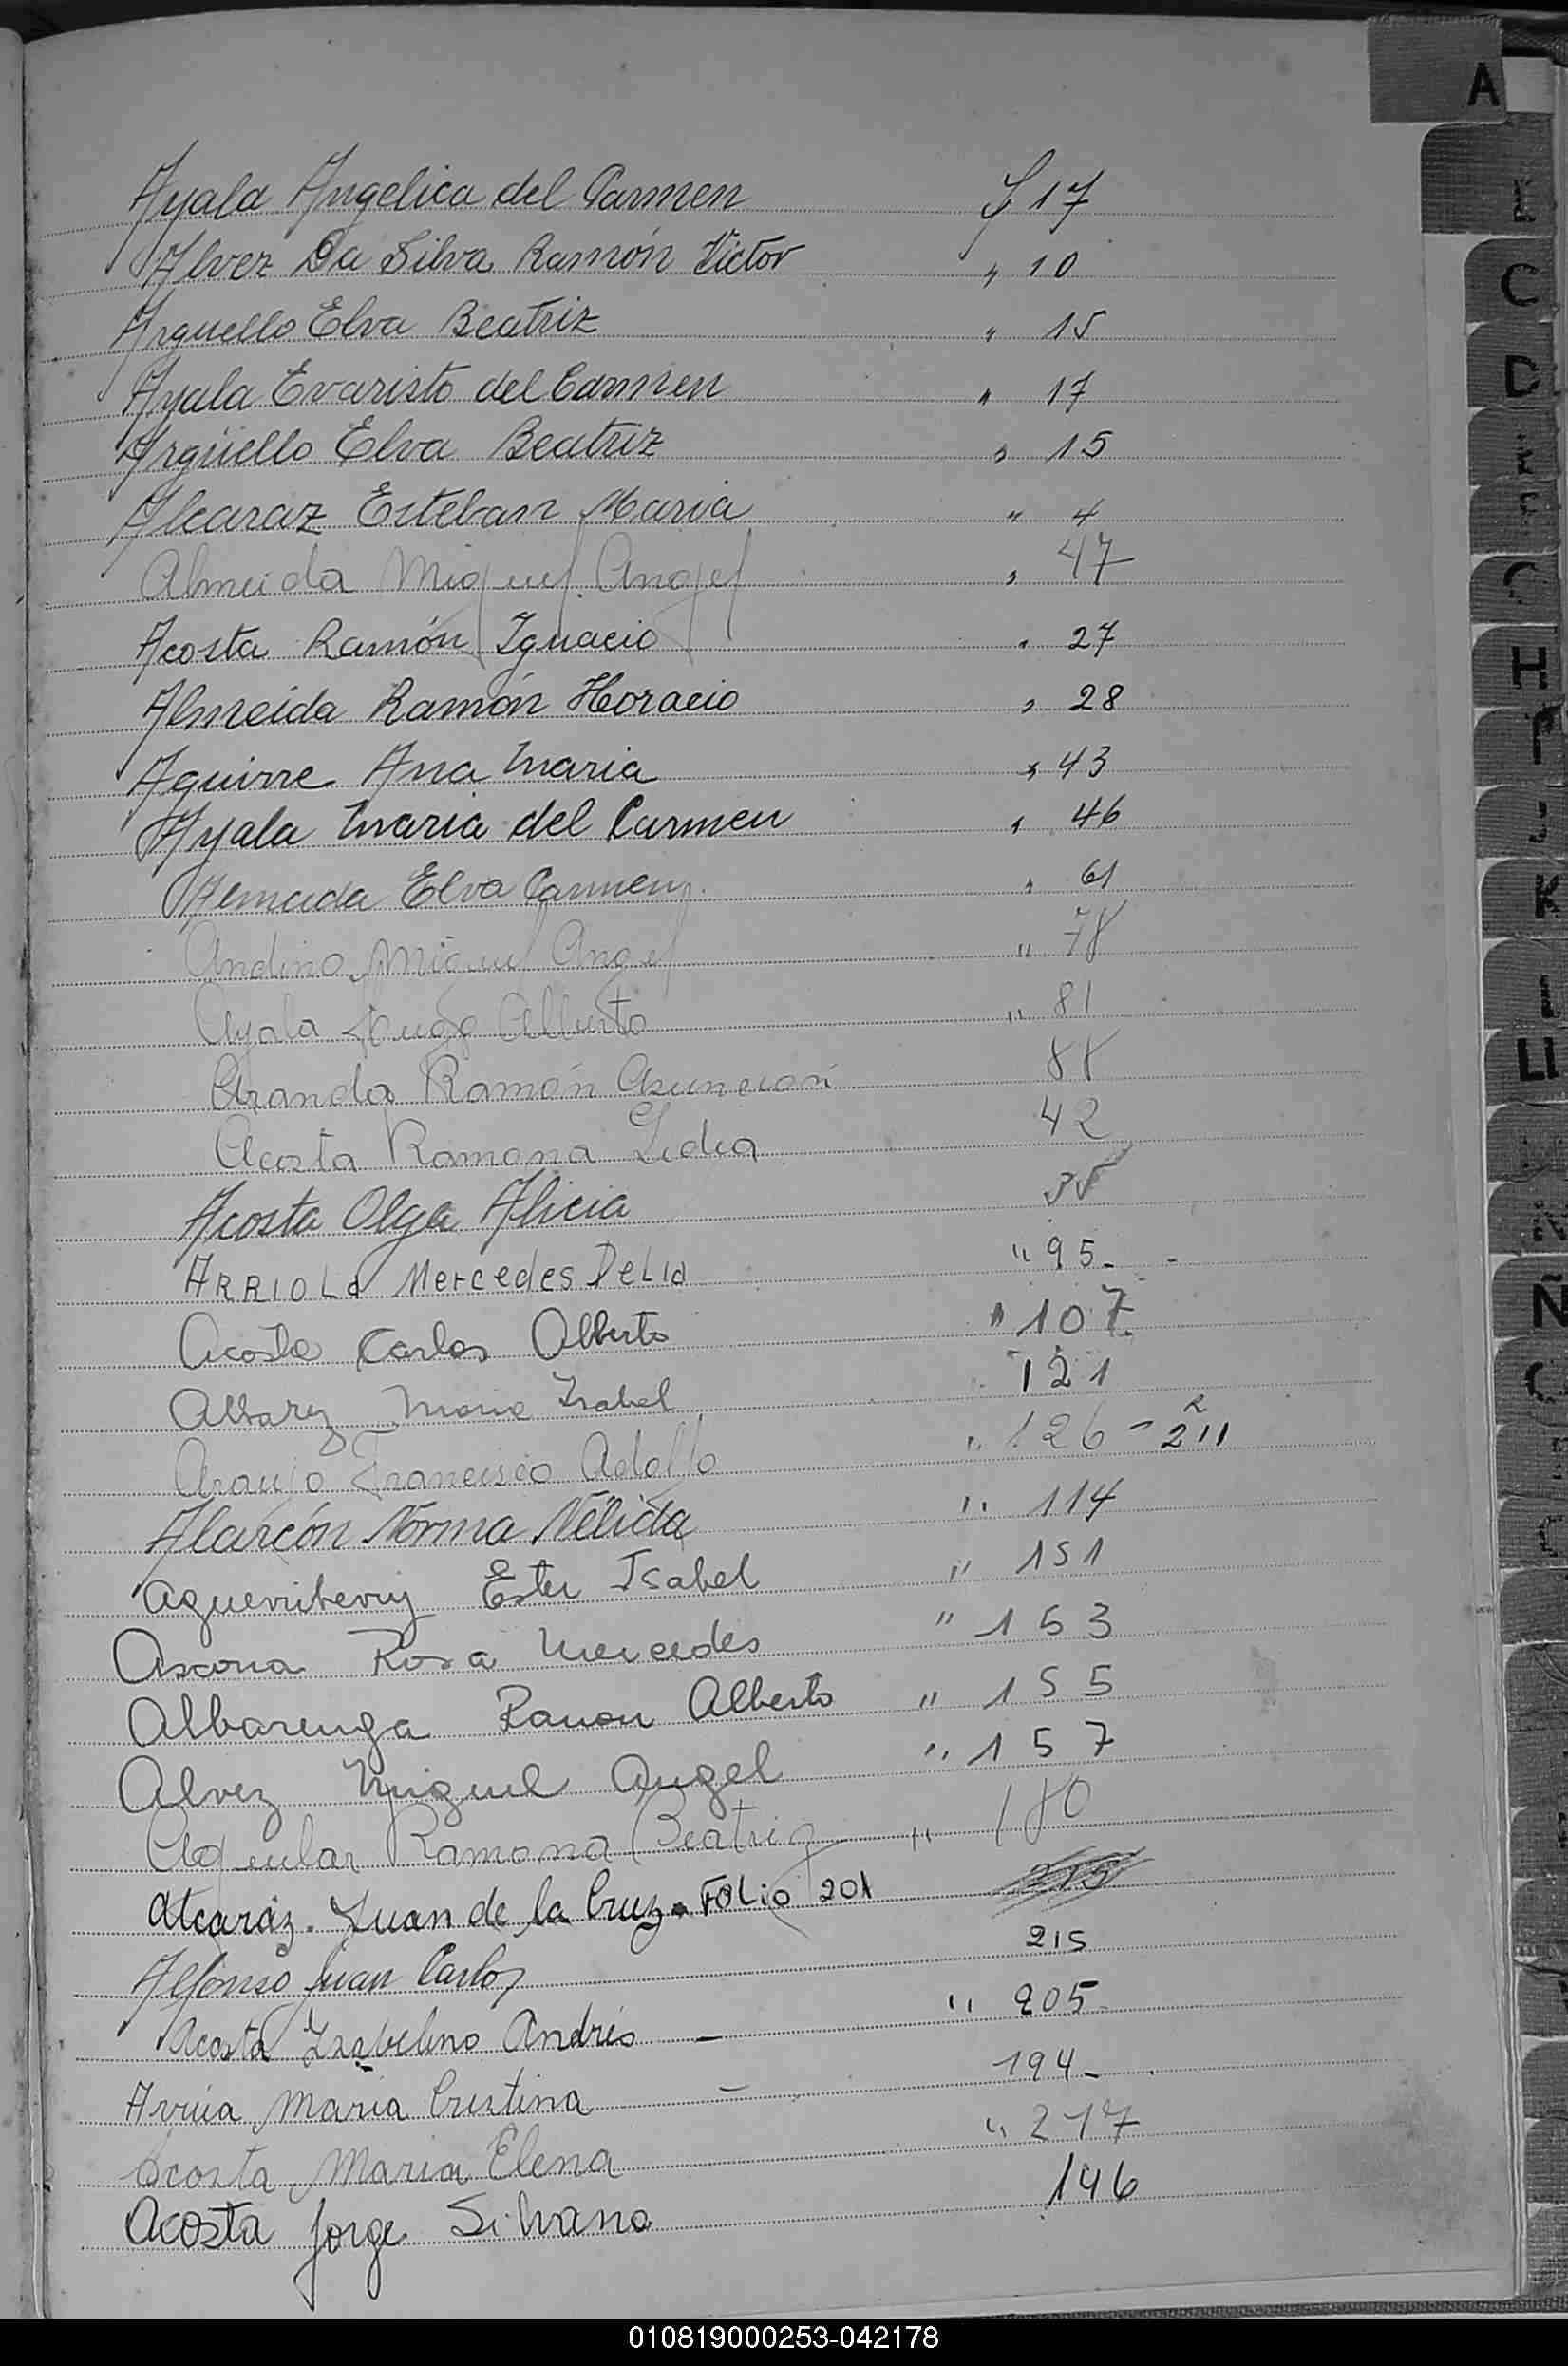 A
Ayala Angelica del Carmen f 17
Alvez Da Silva Ramón Victor " 10
Arguello Elva Beatriz " 15
Ayala Evaristo del Carmen " 17
Argüello Elva Beatriz " 15
Alcaraz Esteban Maria " 4
Almeida Miguel Angel " 47
Acosta Ramón Ignacio " 27
Almeida Ramón Horacio " 28
Aguirre Ana Maria " 43
Ayala Maria del Carmen " 46
Almeida Elva Carmen " 61
Andino Miguel Angel " 78
Ayala Hugo Alberto " 81
Aranda Ramón Asunción 88
Acosta Ramona Lidia 42
Acosta Olga Alicia
ARRIOLA Mercedes DELIA " 95-
Acosta Carlos Alberto " 107
Albarez Maria Isabel 121
Araujo Francisco Adolfo " 126 - 211
Alarcón Norma Nélida " 114
Ester Isabel " 151
Ascona Rosa Mercedes " 153
Albarenga Ramon Alberto " 155
Alvez Miguel Angel " 157
Aguilar Ramona Beatriz " 180
Alcaráz. Juan de la Cruz. FOLIO 201 215
Alfonso Juan Carlos 215
Acosta Isabelino Andrés - " 205-
Arrúa María Cristina - 194-
Acosta Maria Elena " 217
Acosta Jorge Silvano 146
C
D
H
K
L
Ll
Ñ
010819000253-042178